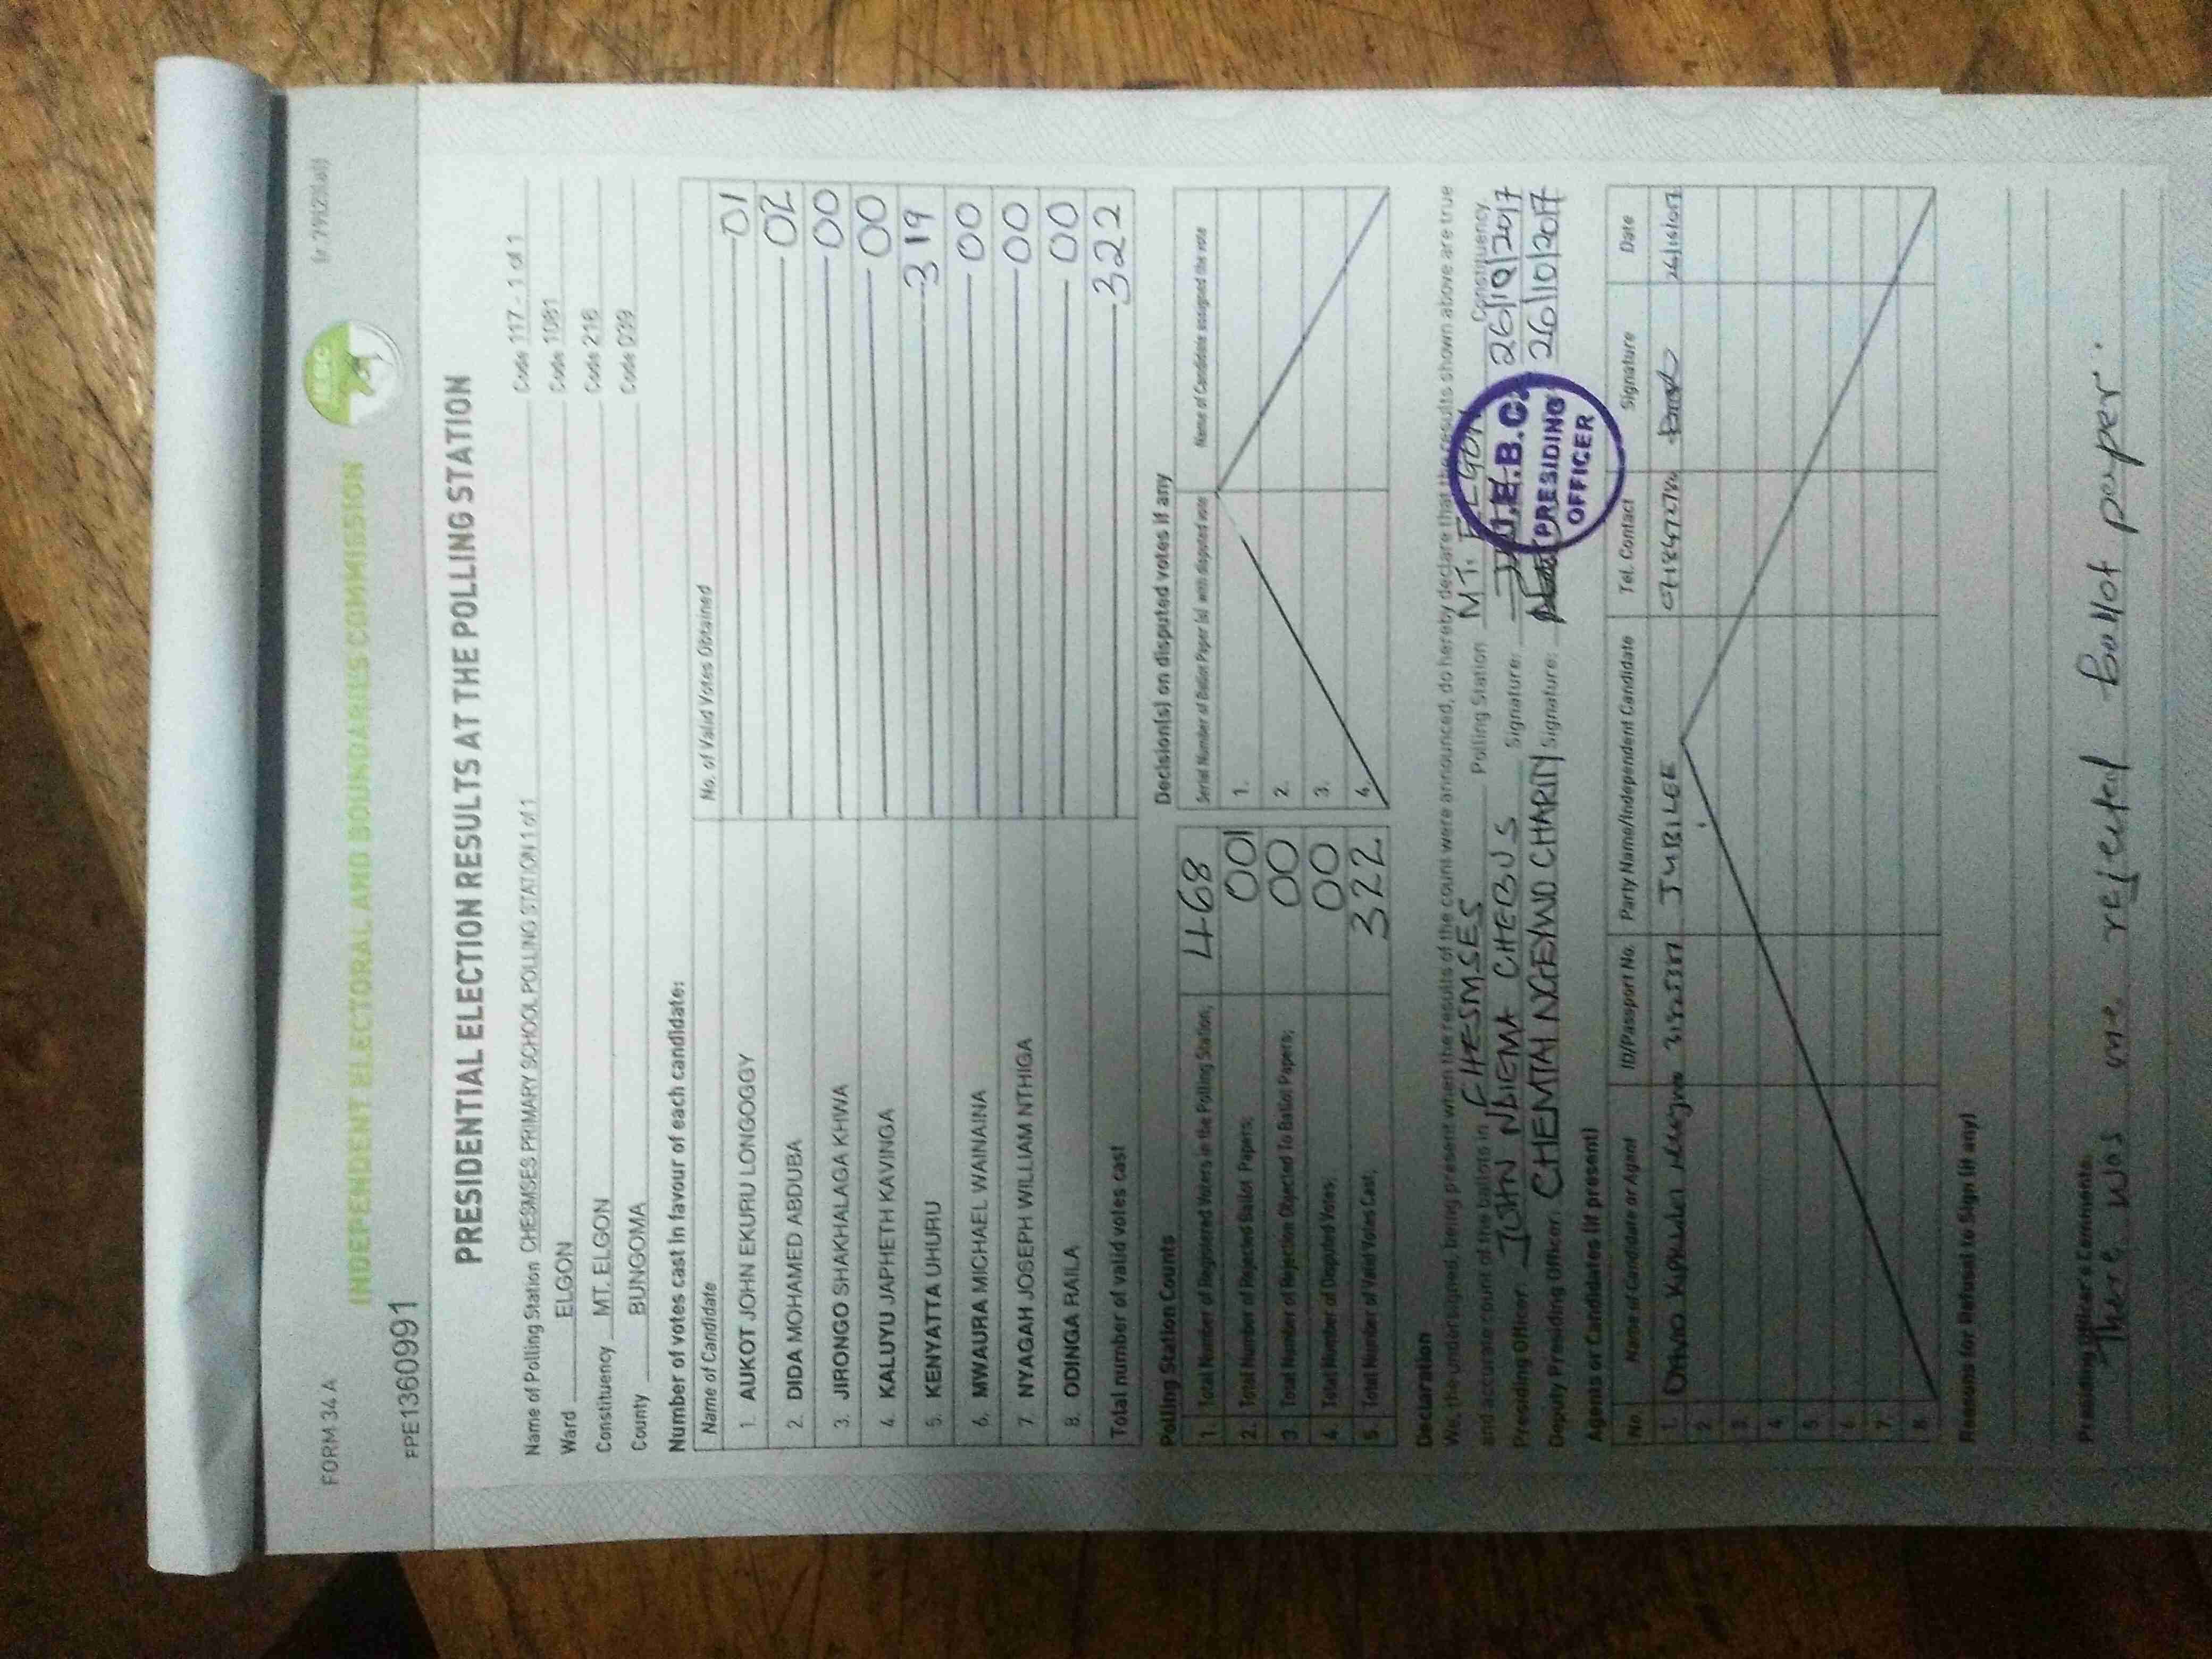 FORM 34 A
(r.79(2)(a))
IEBC
INDEPENDENT ELECTORAL AND BOUNDARIES COMMISSION
FPE1360991
PRESIDENTIAL ELECTION RESULTS AT THE POLLING STATION
Name of Polling Station CHESMSES PRIMARY SCHOOL POLLING STATION 1 of 1 Code 117 - 1 of 1
Ward ELGON Code 1081
Constituency MT. ELGON Code 216
County BUNGOMA Code 039
Number of votes cast in favour of each candidate:
Name of Candidate No. of Valid Votes Obtained
1. AUKOT JOHN EKURU LONGOGGY 01
2. DIDA MOHAMED ABDUBA 02
3. JIRONGO SHAKHALAGA KHWA 00
4. KALUYU JAPHETH KAVINGA 00
5. KENYATTA UHURU 319
6. MWAURA MICHAEL WAINAINA 00
7. NYAGAH JOSEPH WILLIAM NTHIGA 00
8. ODINGA RAILA 00
Total number of valid votes cast 322
Polling Station Counts
1. Total Number of Registered Voters in the Polling Station; 468
2. Total Number of Rejected Ballot Papers; 001
3. Total Number of Rejection Objected To Ballot Papers; 00
4. Total Number of Disputed Votes; 00
5. Total Number of Valid Votes Cast; 322
Decision(s) on disputed votes if any
Serial Number of Ballot Paper (s) with disputed vote Name of Candidate assigned the vote
1.
2.
3.
4.
Declaration
We, the undersigned, being present when the results of the count were announced, do hereby declare that the results shown above are true
and accurate count of the ballots in CHESMSES Polling Station MT. ELGON Constituency.
Presiding Officer: JOHN NDIEMA CHEBUS Signature: 26/10/2017
Deputy Presiding Officer: CHEMTAI NGEYWO CHARITY Signature: 26/10/2017
I.E.B.C.
PRESIDING
OFFICER
Agents or Candidates (if present)
No. Name of Candidate or Agent ID/Passport No. Party Name/Independent Candidate Tel. Contact Signature Date
1. JUBILEE 26/10/2017
2.
3.
4.
5.
6.
7.
8.
Reasons for Refusal to Sign (if any)
Presiding Officer's Comments:
There was one rejected ballot paper.